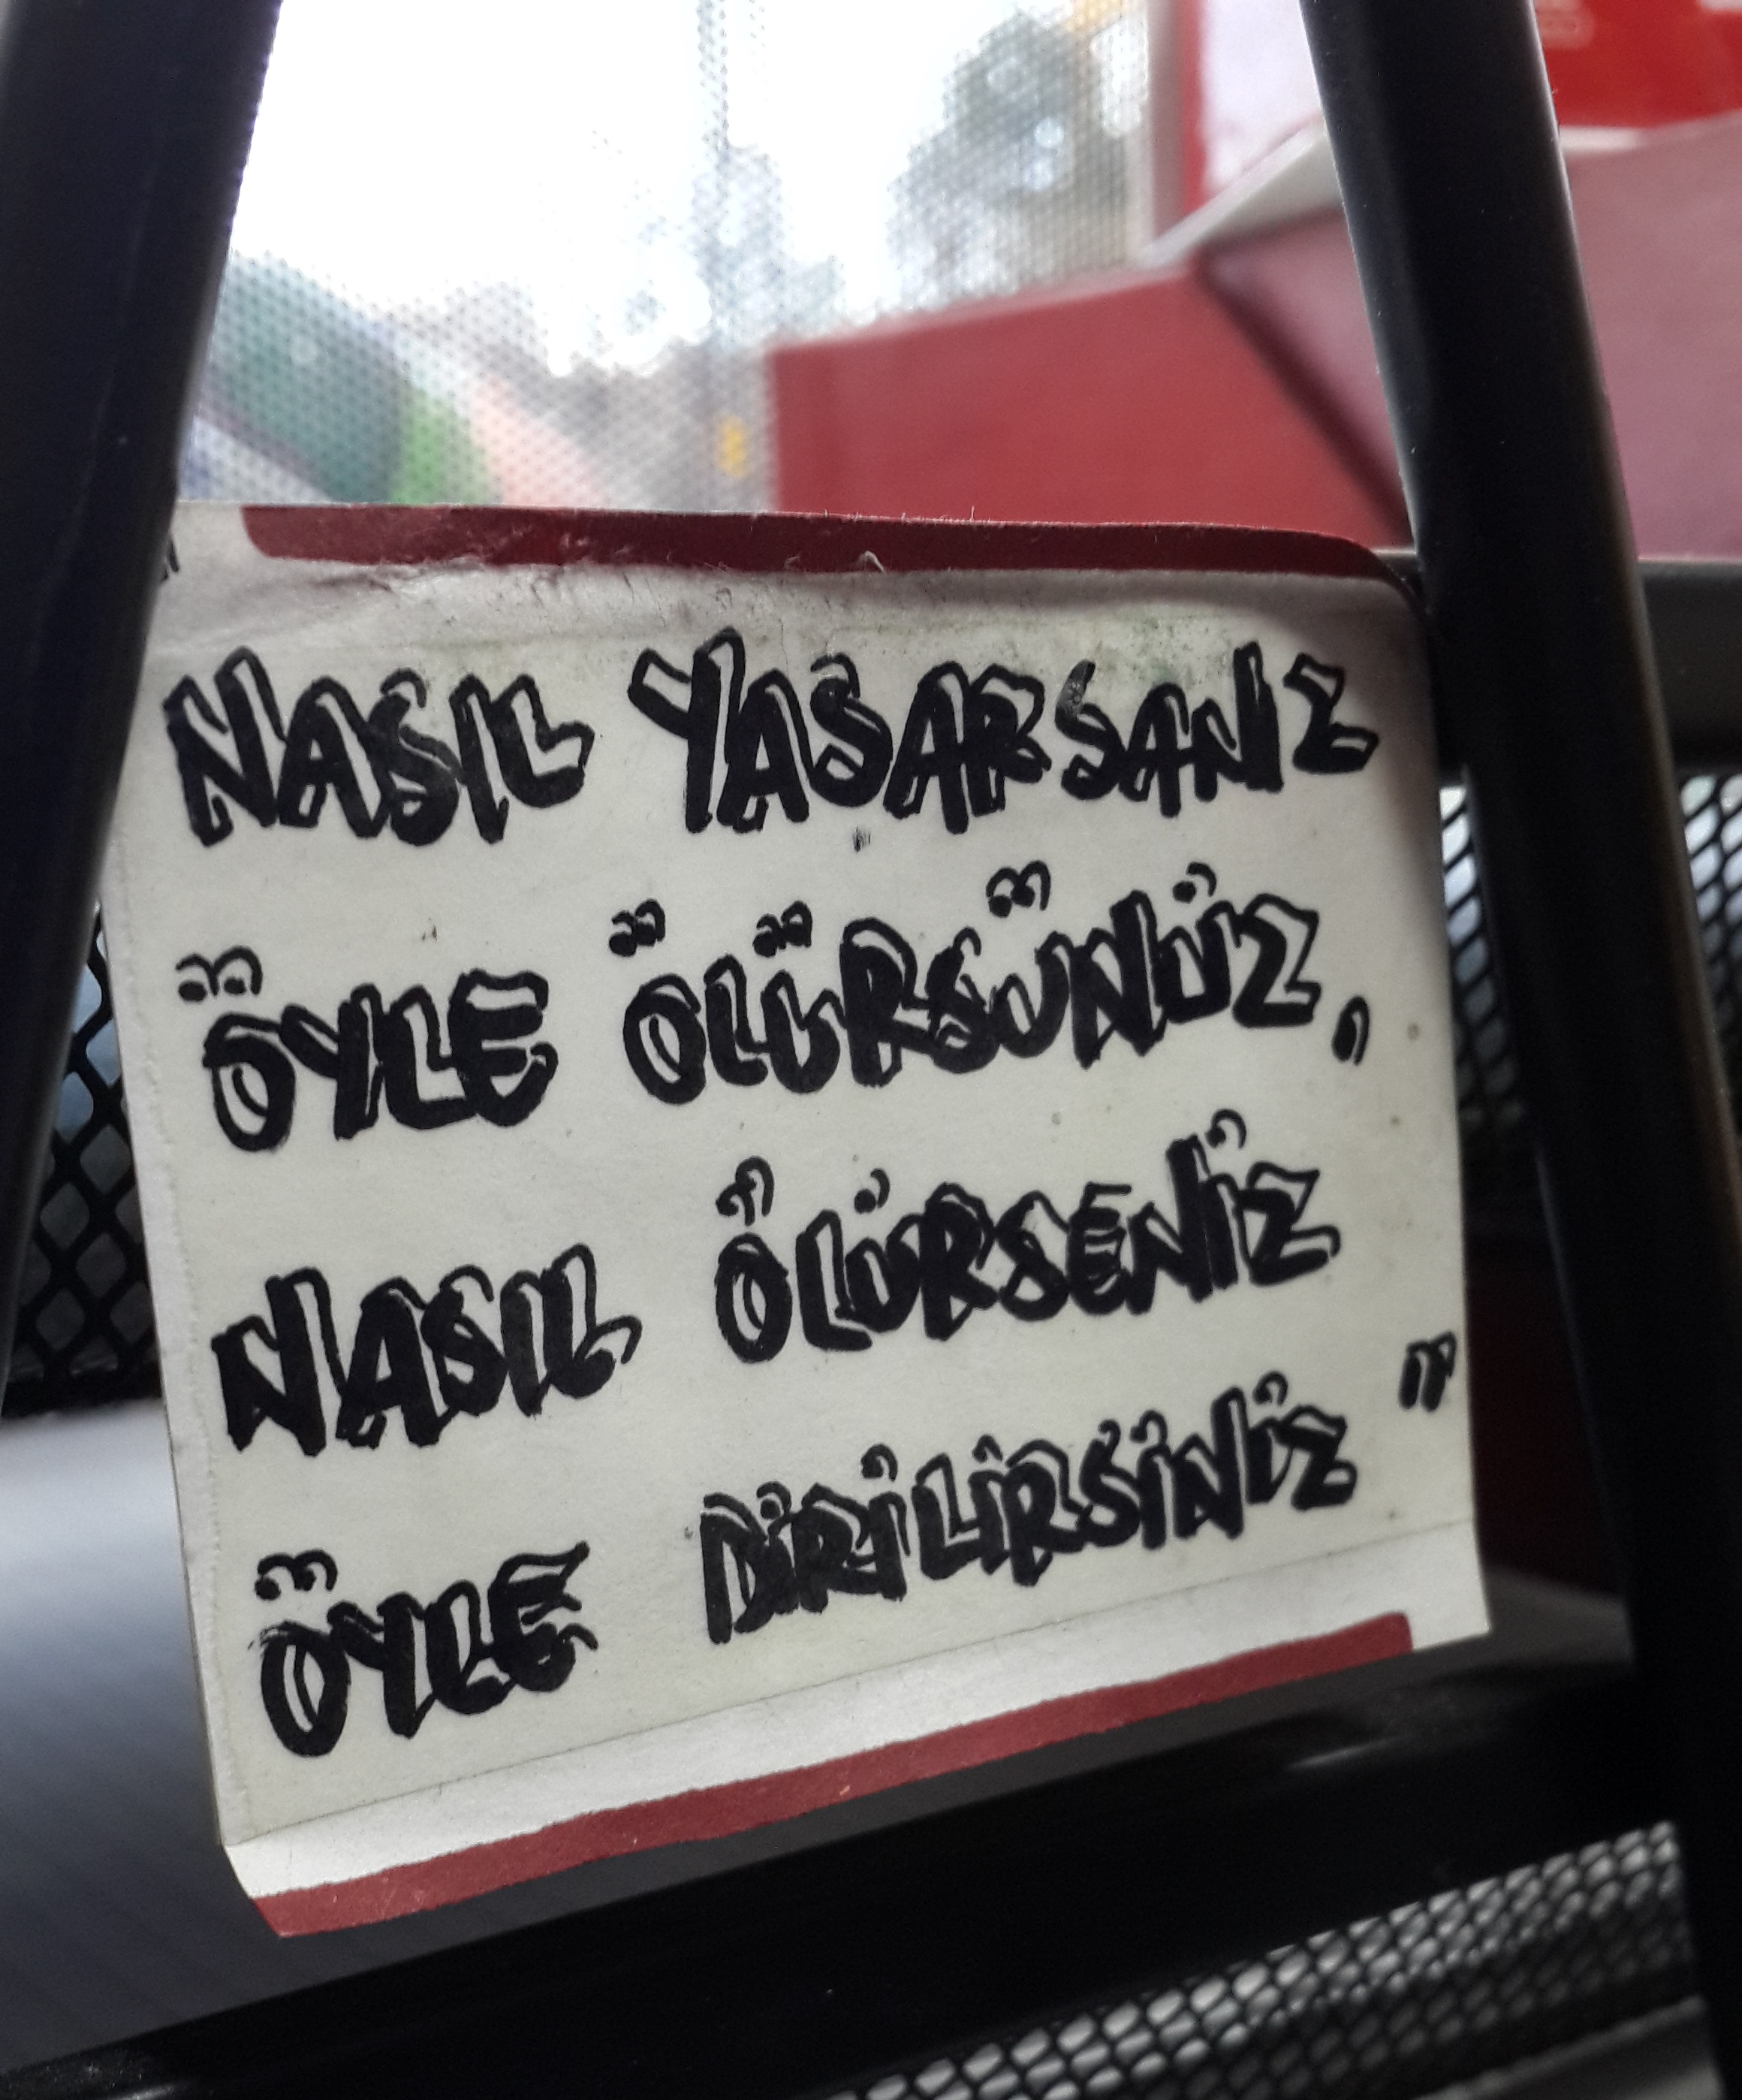 "NASIL YAŞARSANIZ
ÖYLE ÖLÜRSÜNÜZ,
NASIL ÖLÜRSENİZ
ÖYLE DİRİLİRSİNİZ"